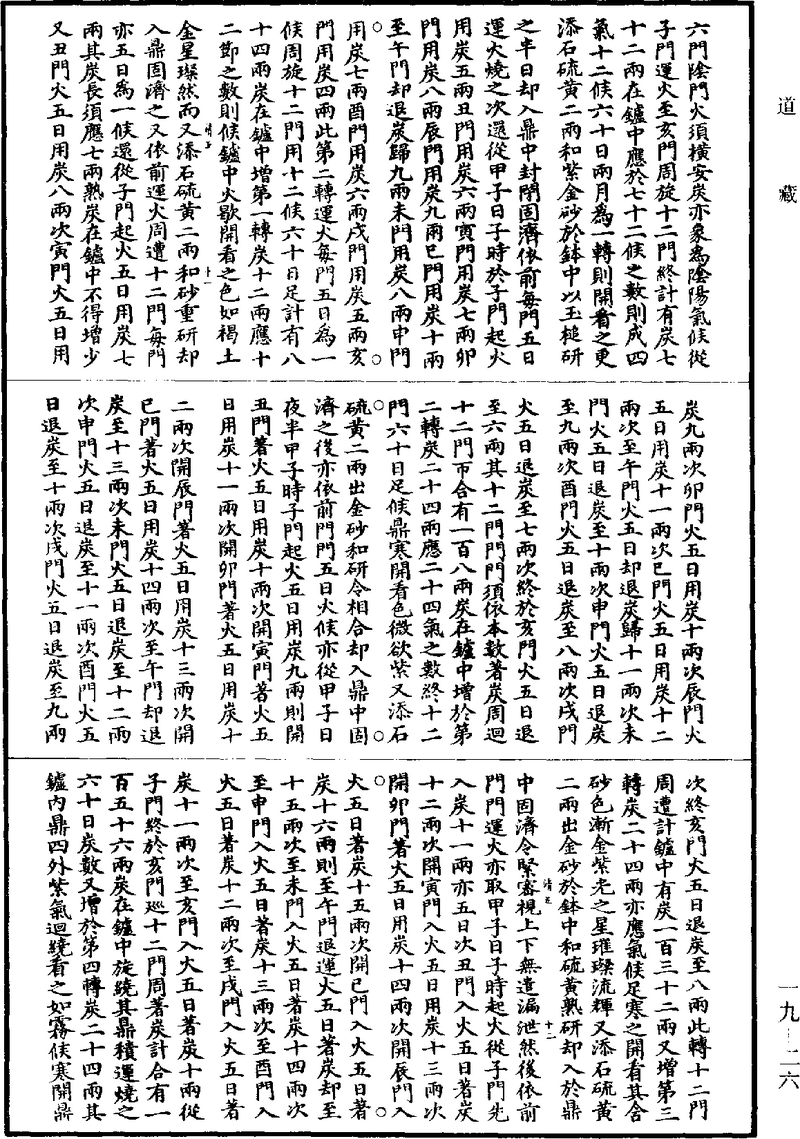 道藏
六門陰門火須橫安炭亦象爲陰陽氣候從
子門運火至亥門周旋十二門終計有炭七
十二兩在鑪中應於七十二候之數則成四
氣十二候六十日兩月爲一轉則開看之更
添石硫黃二兩和紫金砂於鉢中以玉槌研
之半日却入鼎中封閉固濟依前每門五日
運火燒之次還從甲子日子時於子門起火
用炭五兩丑門用炭六兩寅門用炭七兩卯
門用炭八兩辰門用炭九兩巳門用炭十兩
至午門却退炭歸九兩未門用炭八兩申門
用炭七兩酉門用炭六兩戌門用炭五兩亥
門用炭四兩此第二轉運火每門五日爲一
候周旋十二門用十二候六十日足計有八
十四兩炭在鑪中增第一轉炭十二兩應十
二節之數則候鑪中火歇開看之色如褐土
金星璨然而又添石硫黃二兩和砂重研却
入鼎固濟之又依前運火周遭十二門每門
亦五日爲一候還從子門起火五日用炭七
兩其炭長須應七兩熟炭在鑪中不得增少
又丑門火五日用炭八兩次寅門火五日用
炭九兩次卯門火五日用炭十兩次辰門火
五日用炭十一兩次巳門火五日用炭十二
兩次至午門火五日却退炭歸十一兩次未
門火五日退炭至十兩次申門火五日退炭
至九兩次酉門火五日退炭至八兩次戌門
火五日退炭至七兩次終於亥門火五日退
至六兩其十二門門門須依本數著炭周迴
十二門帀合有一百八兩炭在鑪中增於第
二轉炭二十四兩應二十四氣之數終十二
門六十日足候鼎寒開看色微欲紫又添石
硫黃二兩出金砂和研令相合却入鼎中固
濟之後亦依前門門五日火候亦從甲子日
夜半甲子時子門起火五日用炭九兩則開
丑門著火五日用炭十兩次開寅門著火五
日用炭十一兩次開卯門著火五日用炭十
二兩次開辰門著火五日用炭十三兩次開
巳門著火五日用炭十四兩次至午門却退
炭至十三兩次未門火五日退炭至十二兩
次申門火五日退炭至十一兩次酉門火五
日退炭至十兩次戌門火五日退炭至九兩
次終亥門火五日退炭至八兩此轉十二門
周遭計鑪中有炭一百三十二兩又增第三
轉炭二十四兩亦應氣候足寒之開看其含
砂色漸金紫光之星璀璨流輝又添石硫黃
二兩出金砂於鉢中和硫黃熟研却入於鼎
中固濟令緊密視上下無遺漏泄然後依前
門門運火亦取甲子日子時起火從子門先
入炭十一兩亦五日次丑門入火五日著炭
十二兩次開寅門入火五日用炭十三兩次
開卯門著火五日用炭十四兩次開辰門入
火五日著炭十五兩次開巳門入火五日著
炭十六兩則至午門退運火五日著炭却至
十五兩次至未門入火五日著炭十四兩次
至申門入火五日著炭十三兩次至酉門入
火五日著炭十二兩次至戌門入火五日著
炭十一兩次至亥門入火五日著炭十兩從
子門終於亥門巡十二門周著炭計合有一
百五十六兩炭在鑪中旋繞其鼎積運燒之
六十日炭數又增於第四轉炭二十四兩其
鑪內鼎四外紫氣迴繞看之如霧候寒開鼎
一九—二六